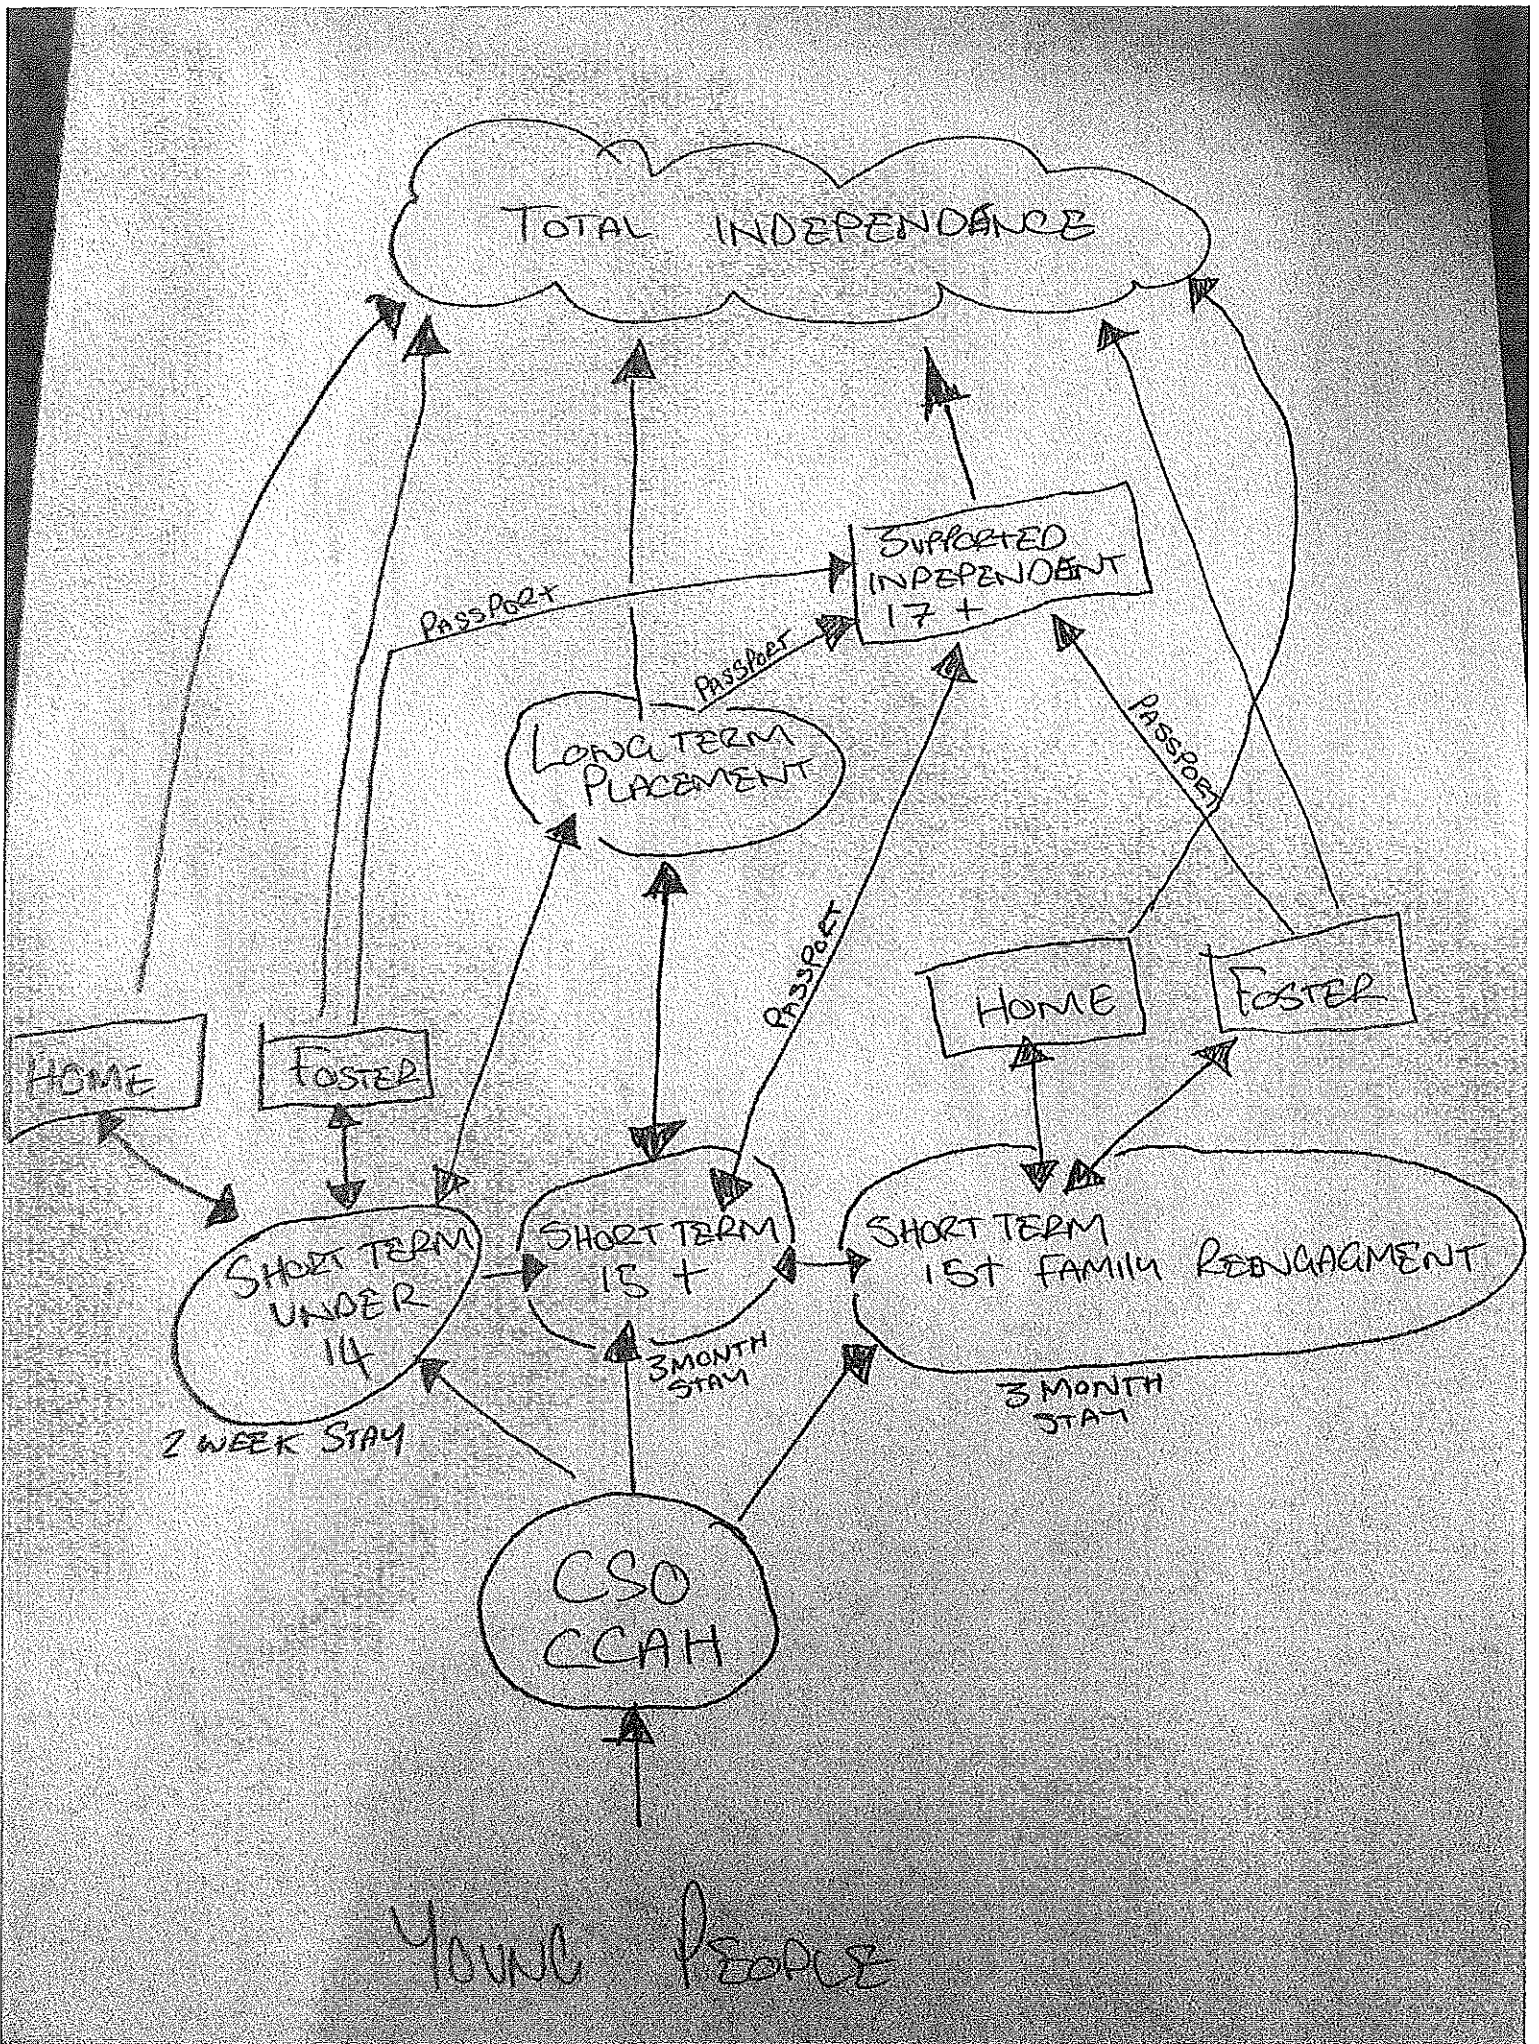 TOTAL INDEPENDANCE
SUPPORTED
INDEPENDENT
17 +
PASSPORT
PASSPORT
LONG TERM
PLACEMENT
PASSPORT
PASSPORT
HOME
FOSTER
HOME
FOSTER
SHORT TERM
UNDER
14
2 WEEK STAY
SHORT TERM
15 +
3 MONTH
STAY
SHORT TERM
15+ FAMILY REENGAGMENT
3 MONTH
STAY
CSO
CCAH
YOUNG PEOPLE